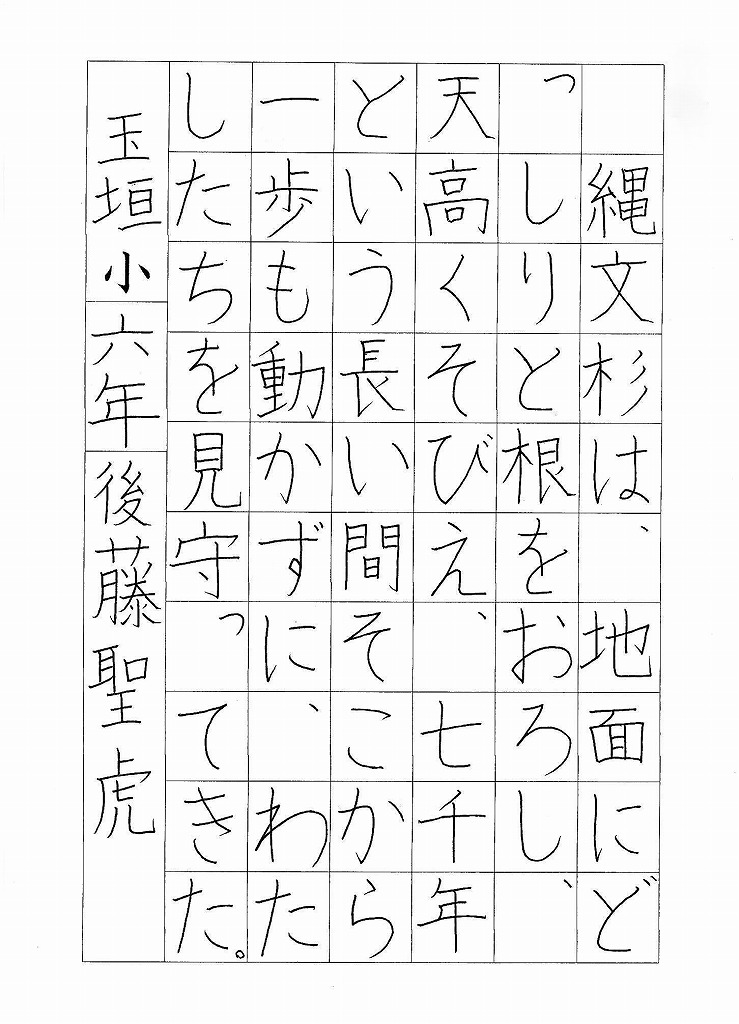 縄文杉は、地面にど
っしりと根をおろし、
天高くそびえ、七千年
という長い間そこから
一歩も動かずに、わた
したちを見守ってきた。
玉垣小六年後藤聖虎